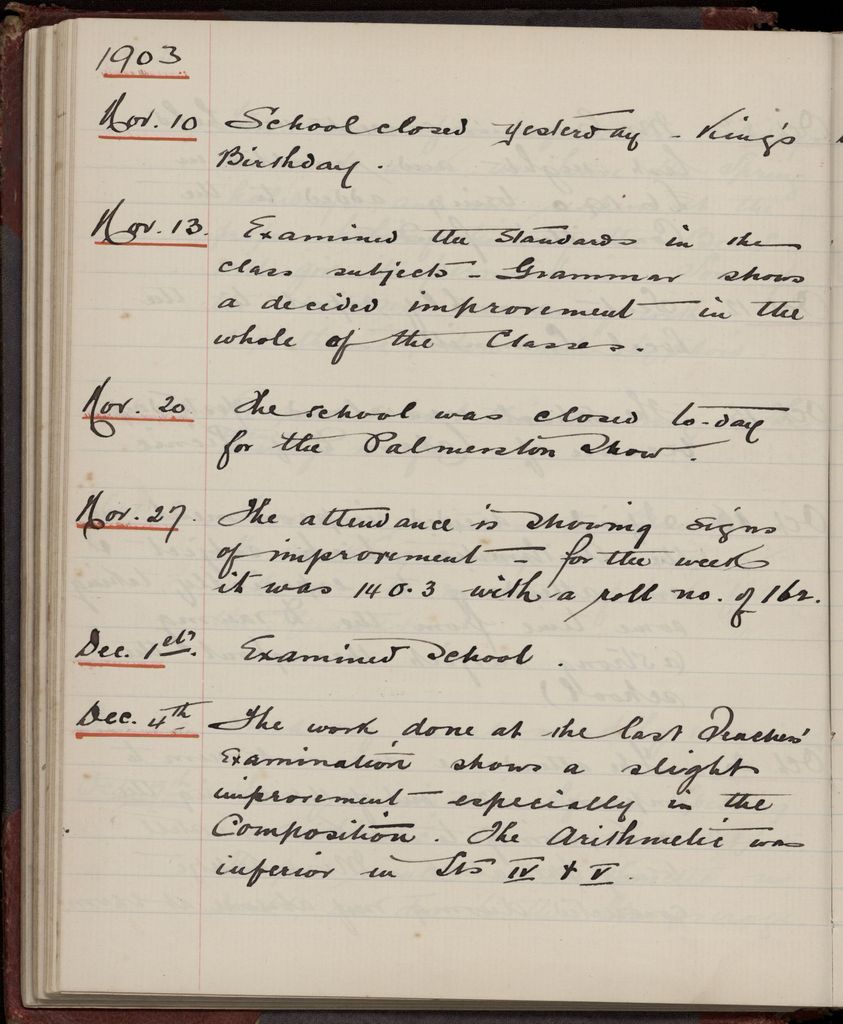 1903
Nov. 10 School closed yesterday - King's
Birthday.
Nov. 13. Examined the Standards in the
class subjects - Grammar shows
a decided improvement in the
whole of the Classes.
Nov. 20 The school was closed to-day
for the Palmerston Show.
Nov. 27. The attendance is showing signs
of improvement - for the week
it was 140.3 with a roll no. of 162.
Dec. 1st. Examined School.
Dec. 4th The work done at the last Teachers'
Examination shows a slight
improvement especially in the
Composition. The Arithmetic was
inferior in Sts IV & V.